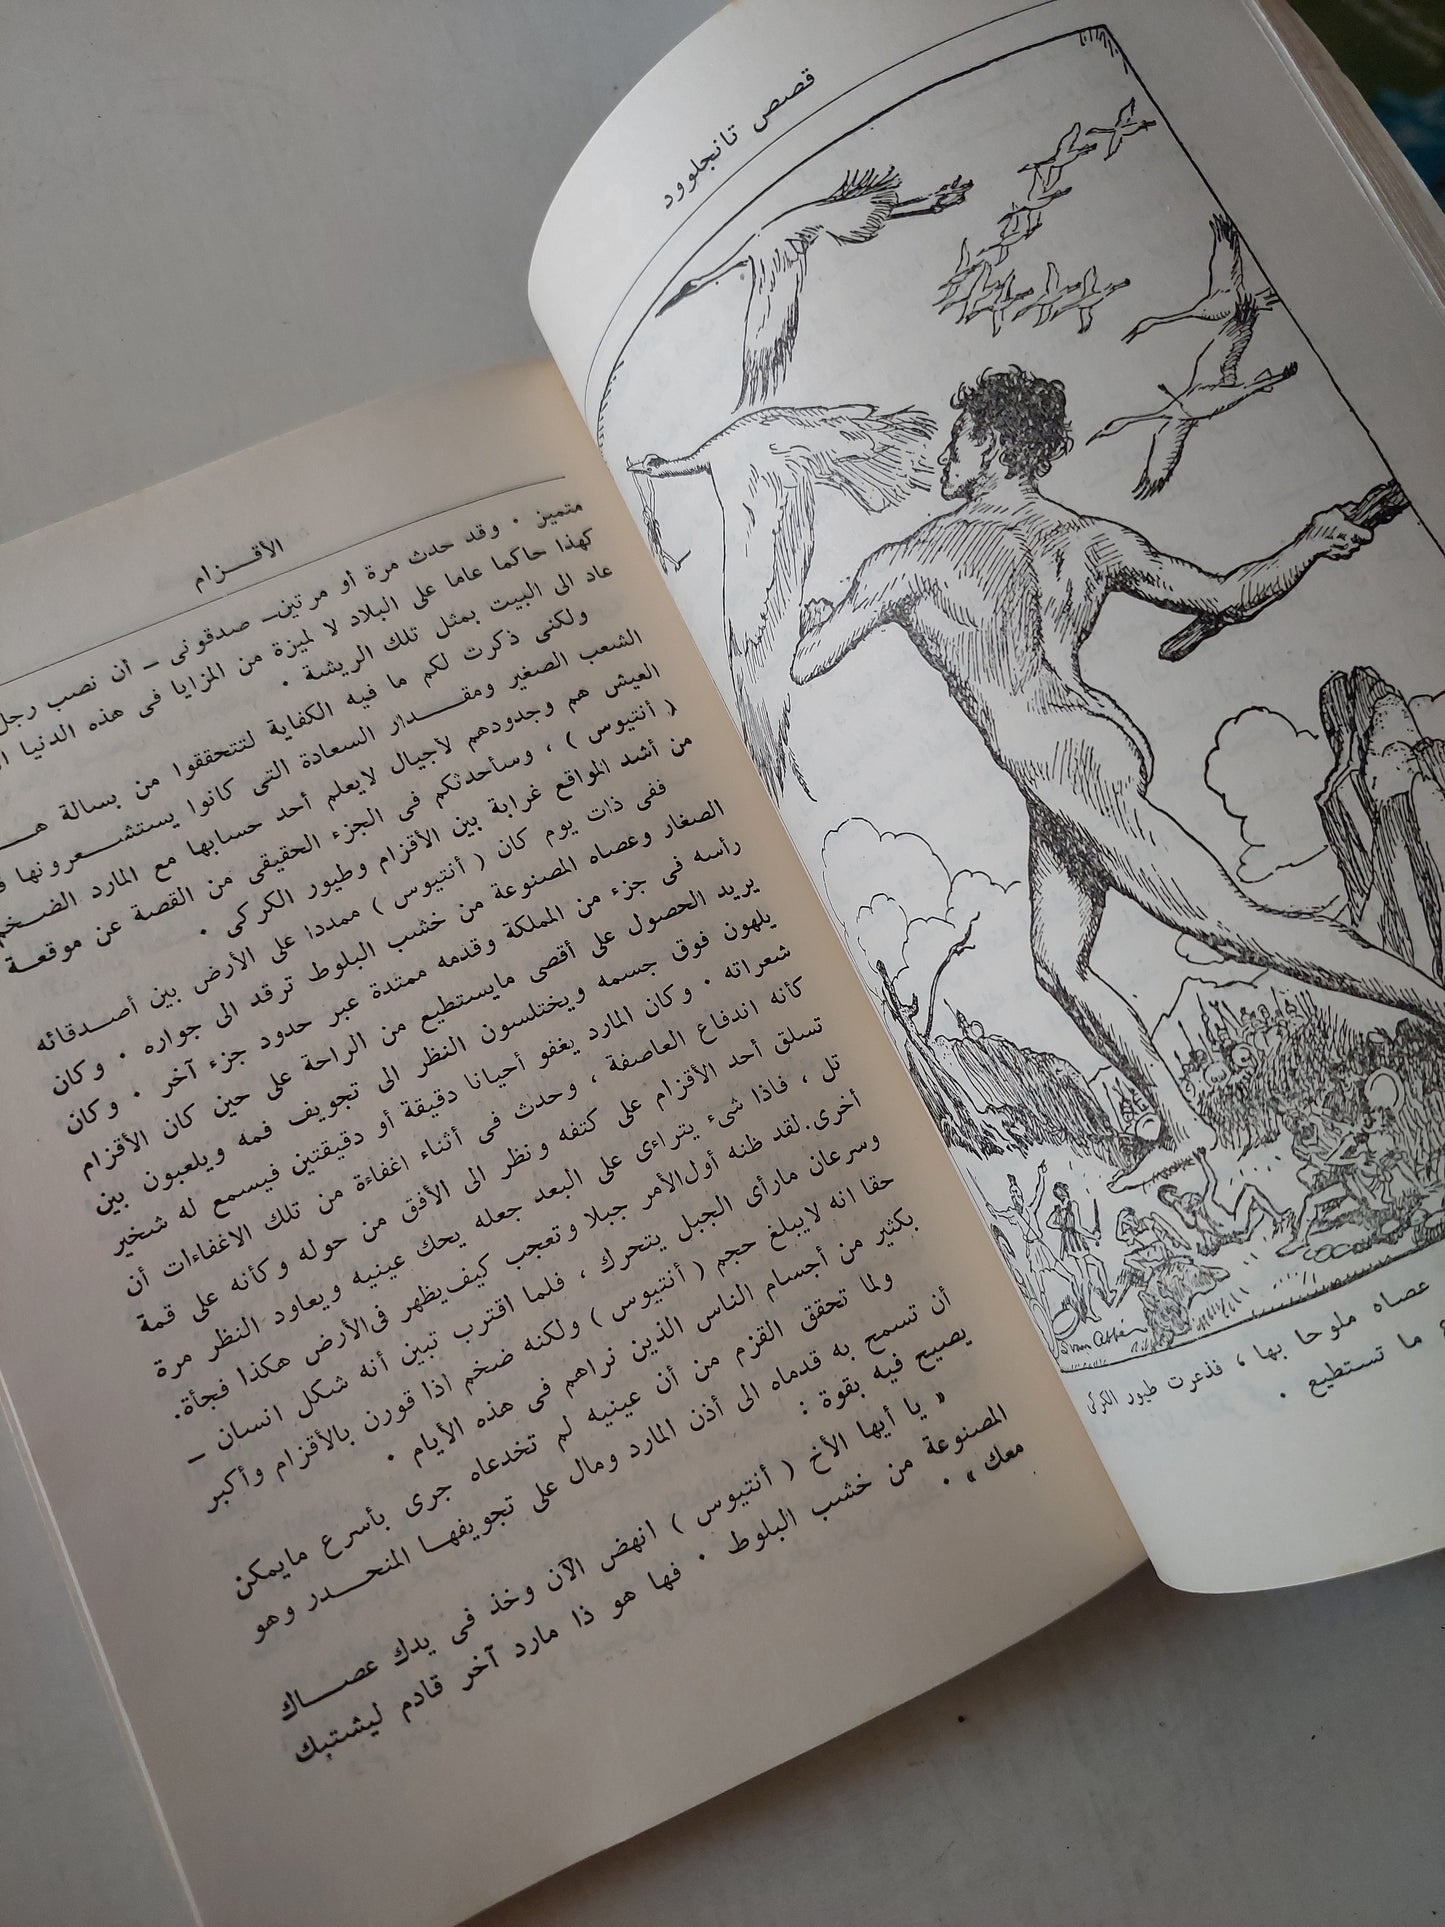 قصص تانجلوود
عصاه ملوحا بها ، فذعرت طيور الكركى
ما تستطيع .
الأقـــزام
متميز . وقد حدث مرة أو مرتين_ صدقونى _ أن نصب رجل
كهذا حاكما عاما على البلاد لا لميزة من المزايا فى هذه الدنيا
عاد الى البيت بمثل تلك الريشة .
ولكنى ذكرت لكم ما فيه الكفاية لتتحققوا من بسالة
الشعب الصغير ومقـــدار السعادة التى كانوا يستشـــعرونها
العيش هم وجدودهم لأجيال لايعلم أحد حسابها مع المارد الضـخم
( أنتيوس ) ، وسأحدثكم فى الجزء الحقيقى من القصة عن موقعـة
من أشد المواقع غرابة بين الأقزام وطيور الكركى .
ففى ذات يوم كان ( أنتيوس ) ممددا على الأرض بين أصـدقائه
الصغار وعصاه المصنوعة من خشب البلوط ترقد الى جواره . وكان
رأسه فى جزء من المملكة وقدمه ممتدة عبر حدود جزء آخر . وكان
يريد الحصول على أقصى مايستطيع من الراحة على حين كان الأقزام
يلهون فوق جسمه ويختلسون النظر الى تجويف فمه ويلعبون بين
شعراته . وكان المارد يغفو أحيانا دقيقة أو دقيقتين فيسمع له شخير
كأنه اندفاع العاصفة ، وحدث فى أثناء اغفاءة من تلك الاغفاءات أن
تسلق أحد الأقزام على كتفه ونظر الى الأفق من حوله وكأنه على قمة
تل ، فاذا شىء يتراءى على البعد جعله يحك عينيه ويعاود النظر مرة
أخرى. لقد ظنه أول الأمر جبلا وتعجب كيف يظهر فى الأرض هكذا فجأة.
وسرعان مارأى الجبل يتحرك ، فلما اقترب تبين أنه شكل انسان _
حقا انه لايبلغ حجم ( أنتيوس ) ولكنه ضخم اذا قورن بالأقزام وأكبر
بكثير من أجسام الناس الذين نراهم فى هذه الأيام .
ولما تحقق القزم من أن عينيه لم تخدعاه جرى بأسرع مايمكن
أن تسمح به قدماه الى أذن المارد ومال على تجويفهـا المنحـــدر وهو
يصيح فيه بقوة :
« يا أيها الأخ ( أنتيوس ) انهض الآن وخذ فى يدك عصـــاك
المصنوعة من خشب البلوط . فها هو ذا مارد آخر قادم ليشتبك
معك » .